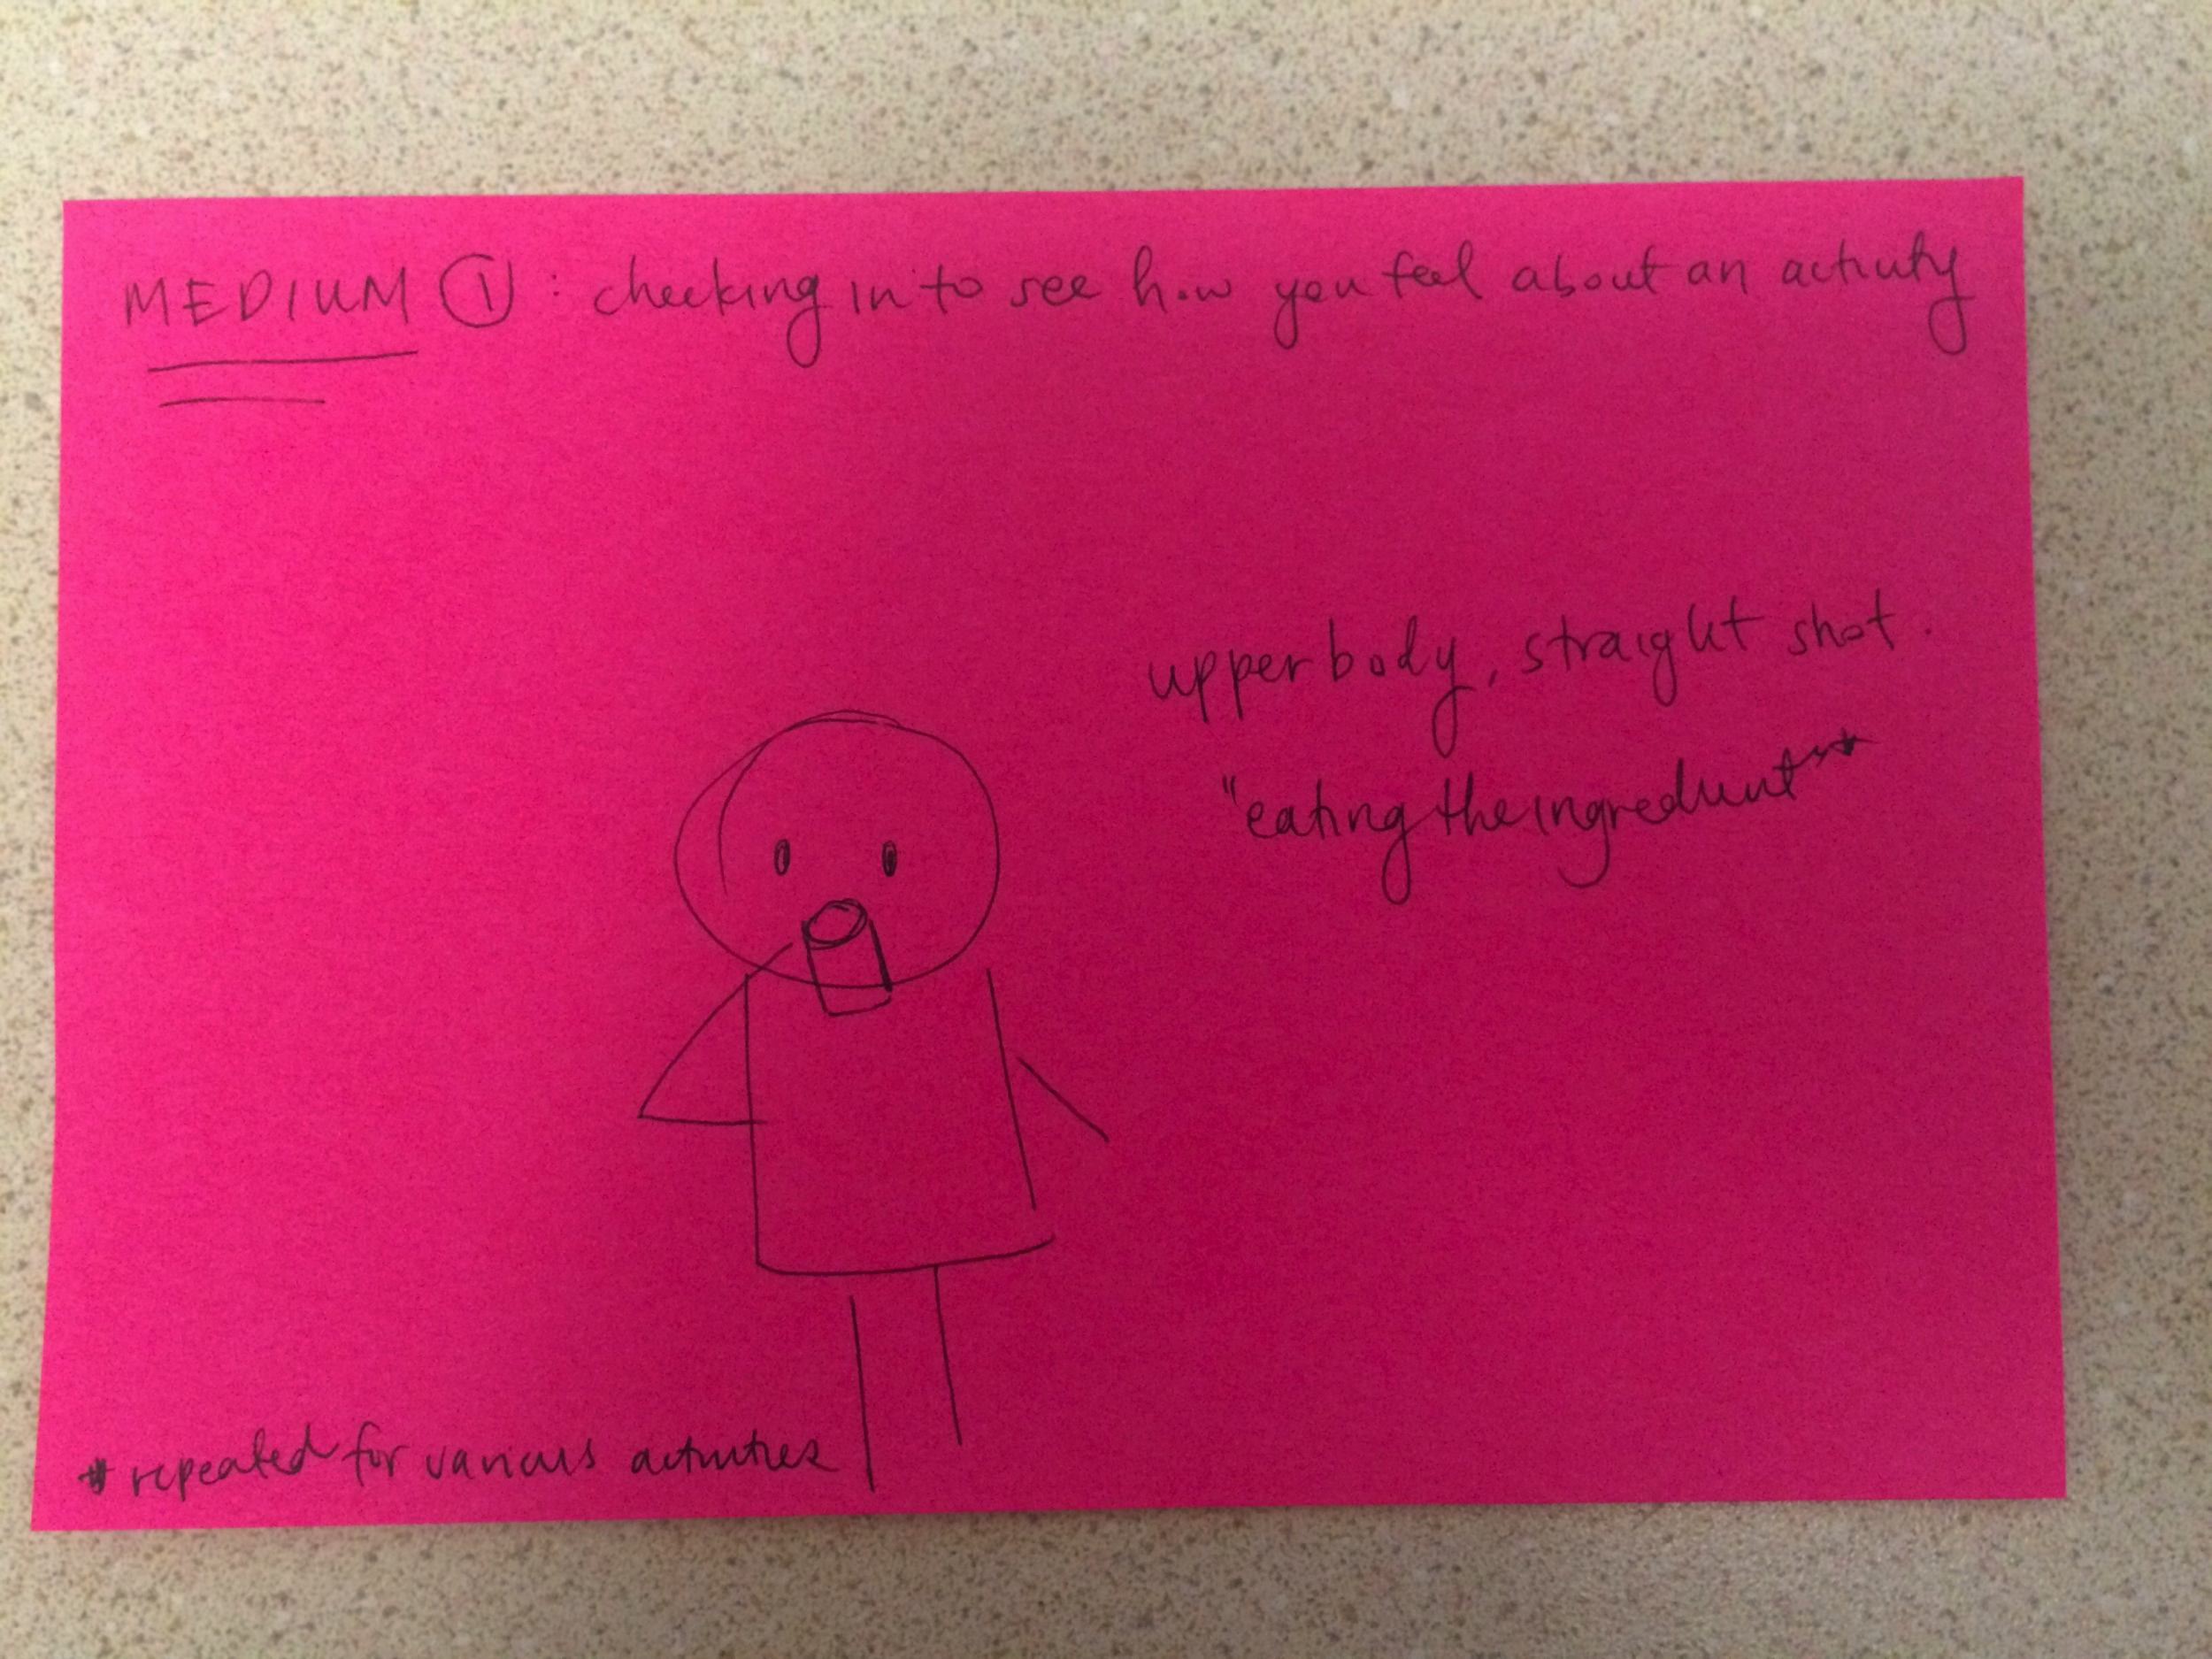 MEDIUM ① : checking in to see how you feel about an activity
upper body, straight shot.
"eating the ingredient" *
* repeated for various activities